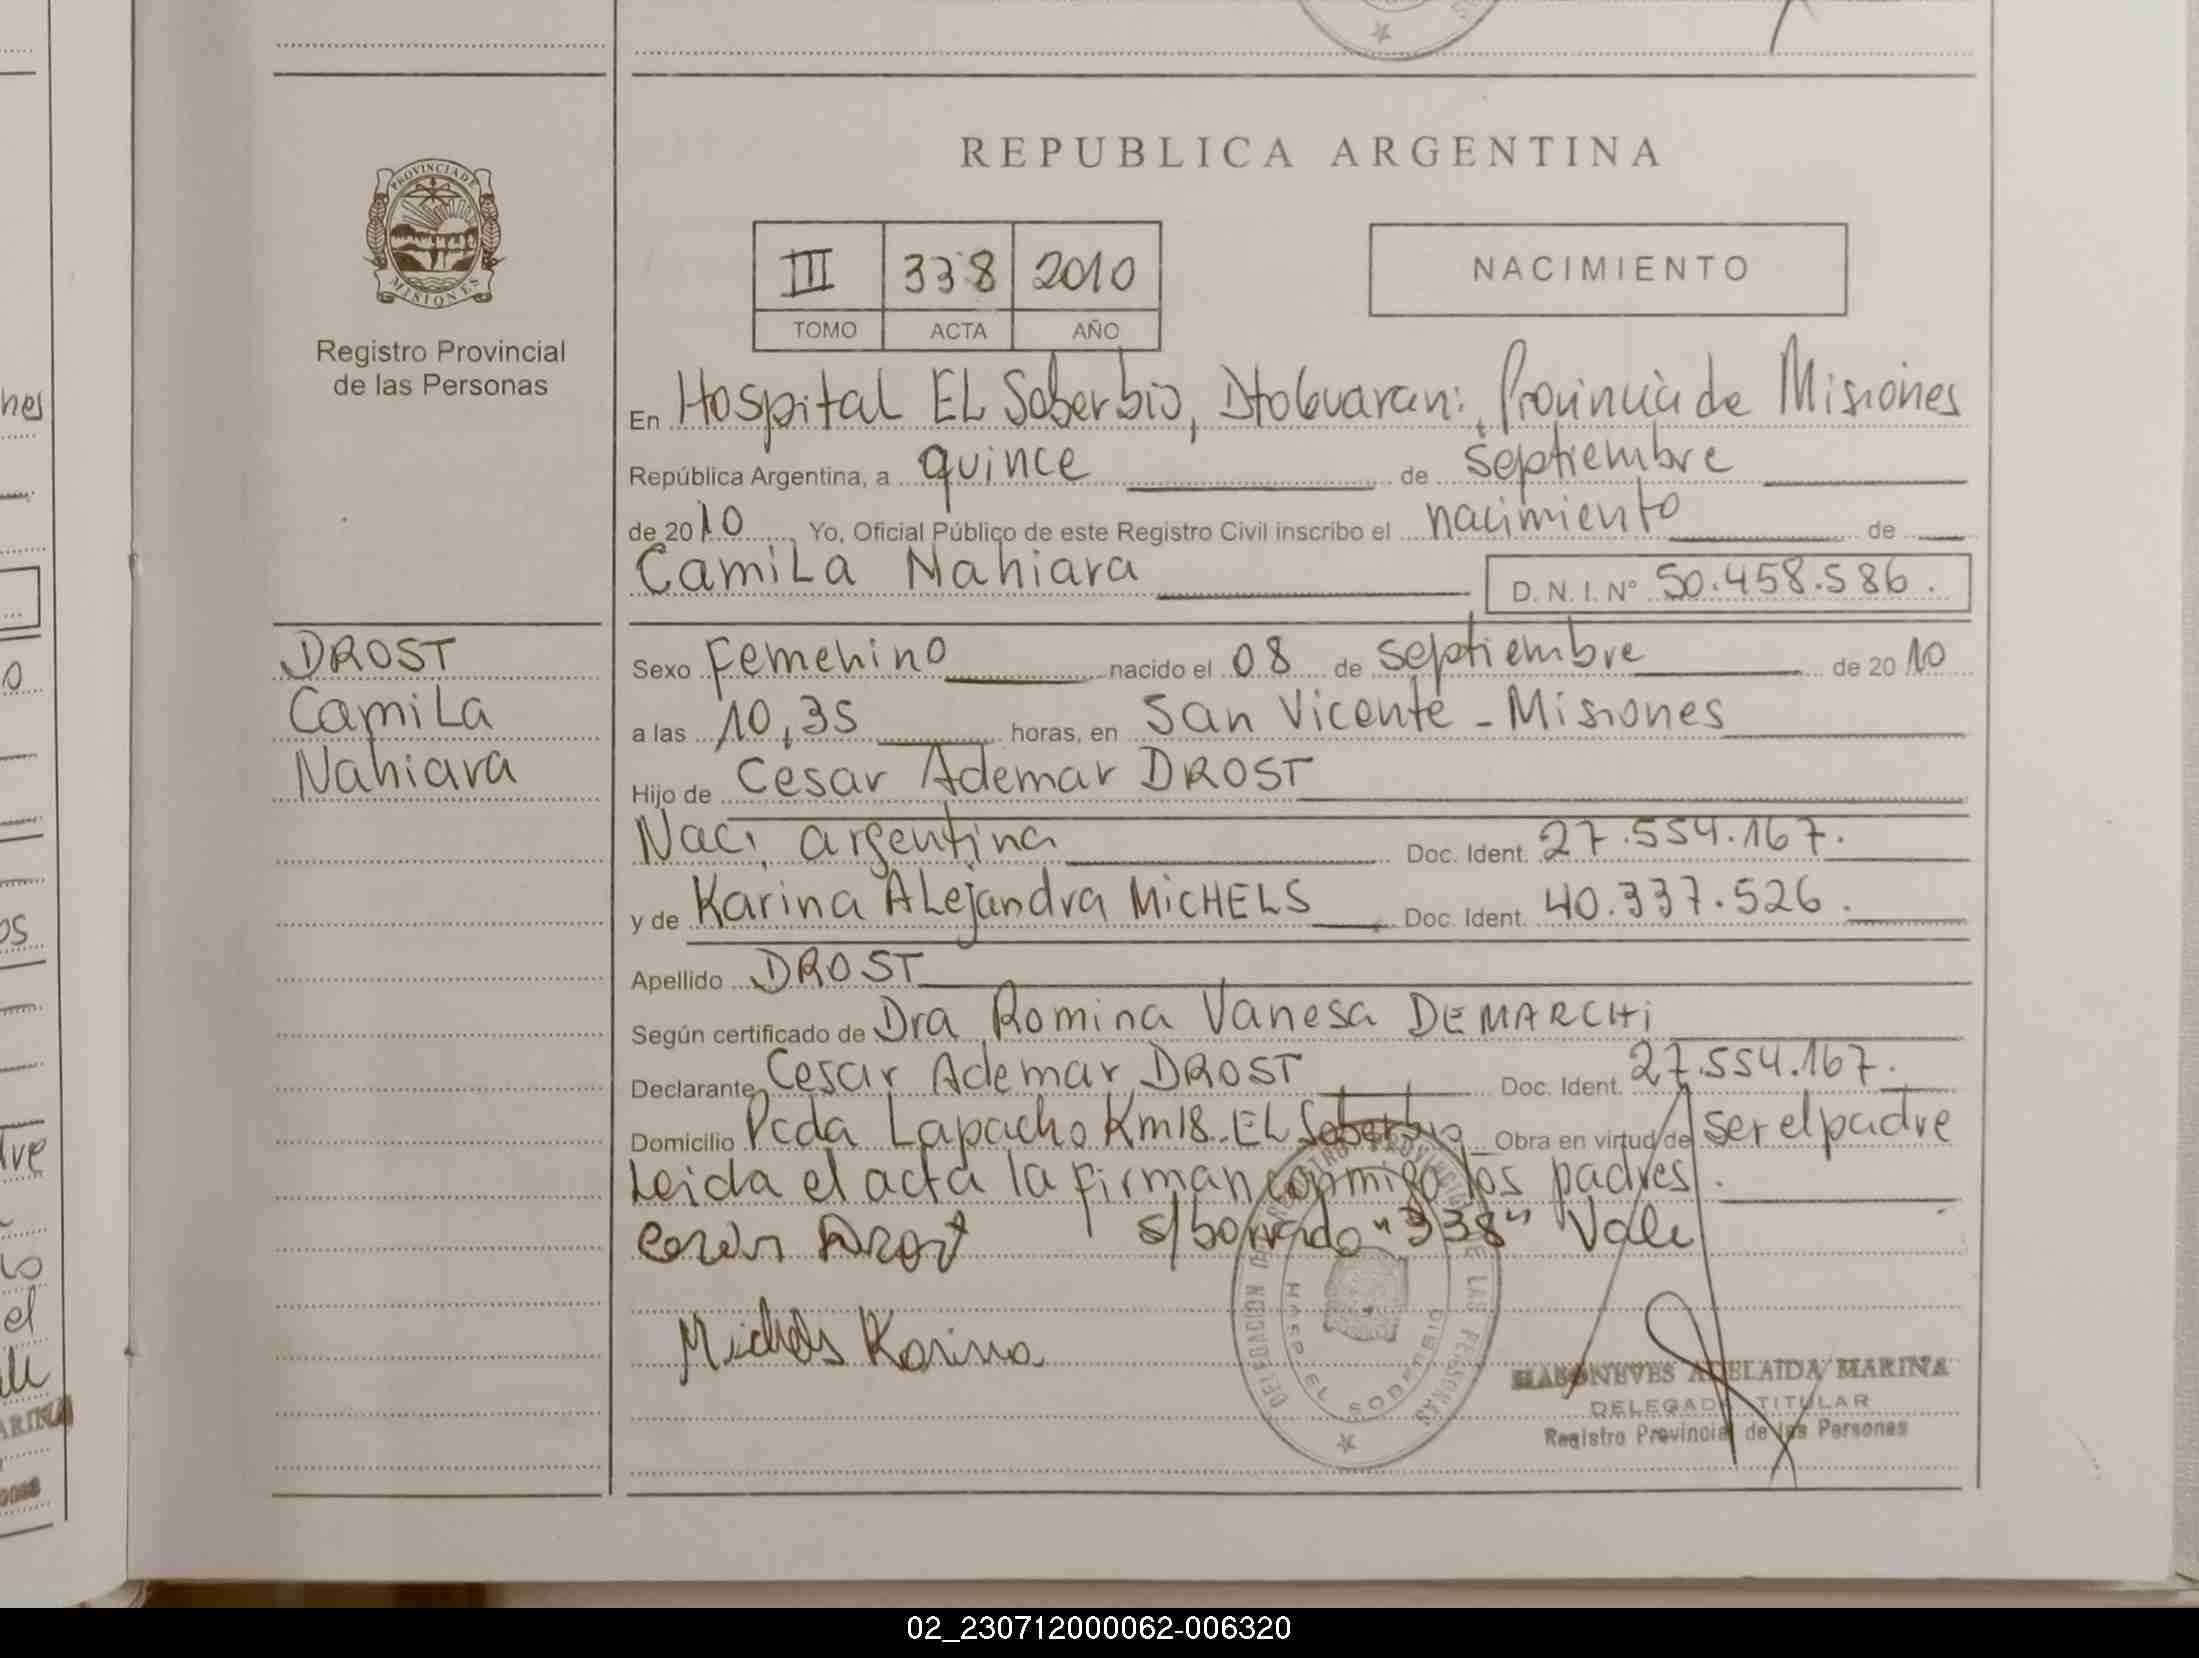 REPUBLICA ARGENTINA
PROVINCIA DE
MISIONES
Registro Provincial
de las Personas
III 338 2010
TOMO ACTA AÑO
NACIMIENTO
En Hospital EL Soberbio, Dto Guaraní, Provincia de Misiones
República Argentina, a quince de septiembre
de 2010 Yo, Oficial Público de este Registro Civil inscribo el nacimiento de
Camila Nahiara D. N. I. Nº 50.458.586.
DROST
Camila
Nahiara
Sexo Femenino nacido el 08 de septiembre de 2010
a las 10,35 horas, en San Vicente - Misiones
Hijo de Cesar Ademar DROST
Naci. argentina Doc. Ident. 27.554.167.
y de Karina ALejandra MiCHELS Doc. Ident. 40.337.526.
Apellido DROST
Según certificado de Dra Romina Vanesa DEMARCHi
Declarante Cesar Ademar DROST Doc. Ident. 27.554.167.
Domicilio Pcda Lapacho Km18. EL Soberbio Obra en virtud de ser el padre
Leida el acta la firman conmigo los padres.
s/borrado "338" Vale
Michels Karina
DELEGACION DEL REGISTRO PROVINCIAL DE LAS PERSONAS
HOSP. EL SOBERBIO
ADELAIDA MARINA
DELEGADA TITULAR
Registro Provincial de las Personas
02_230712000062-006320